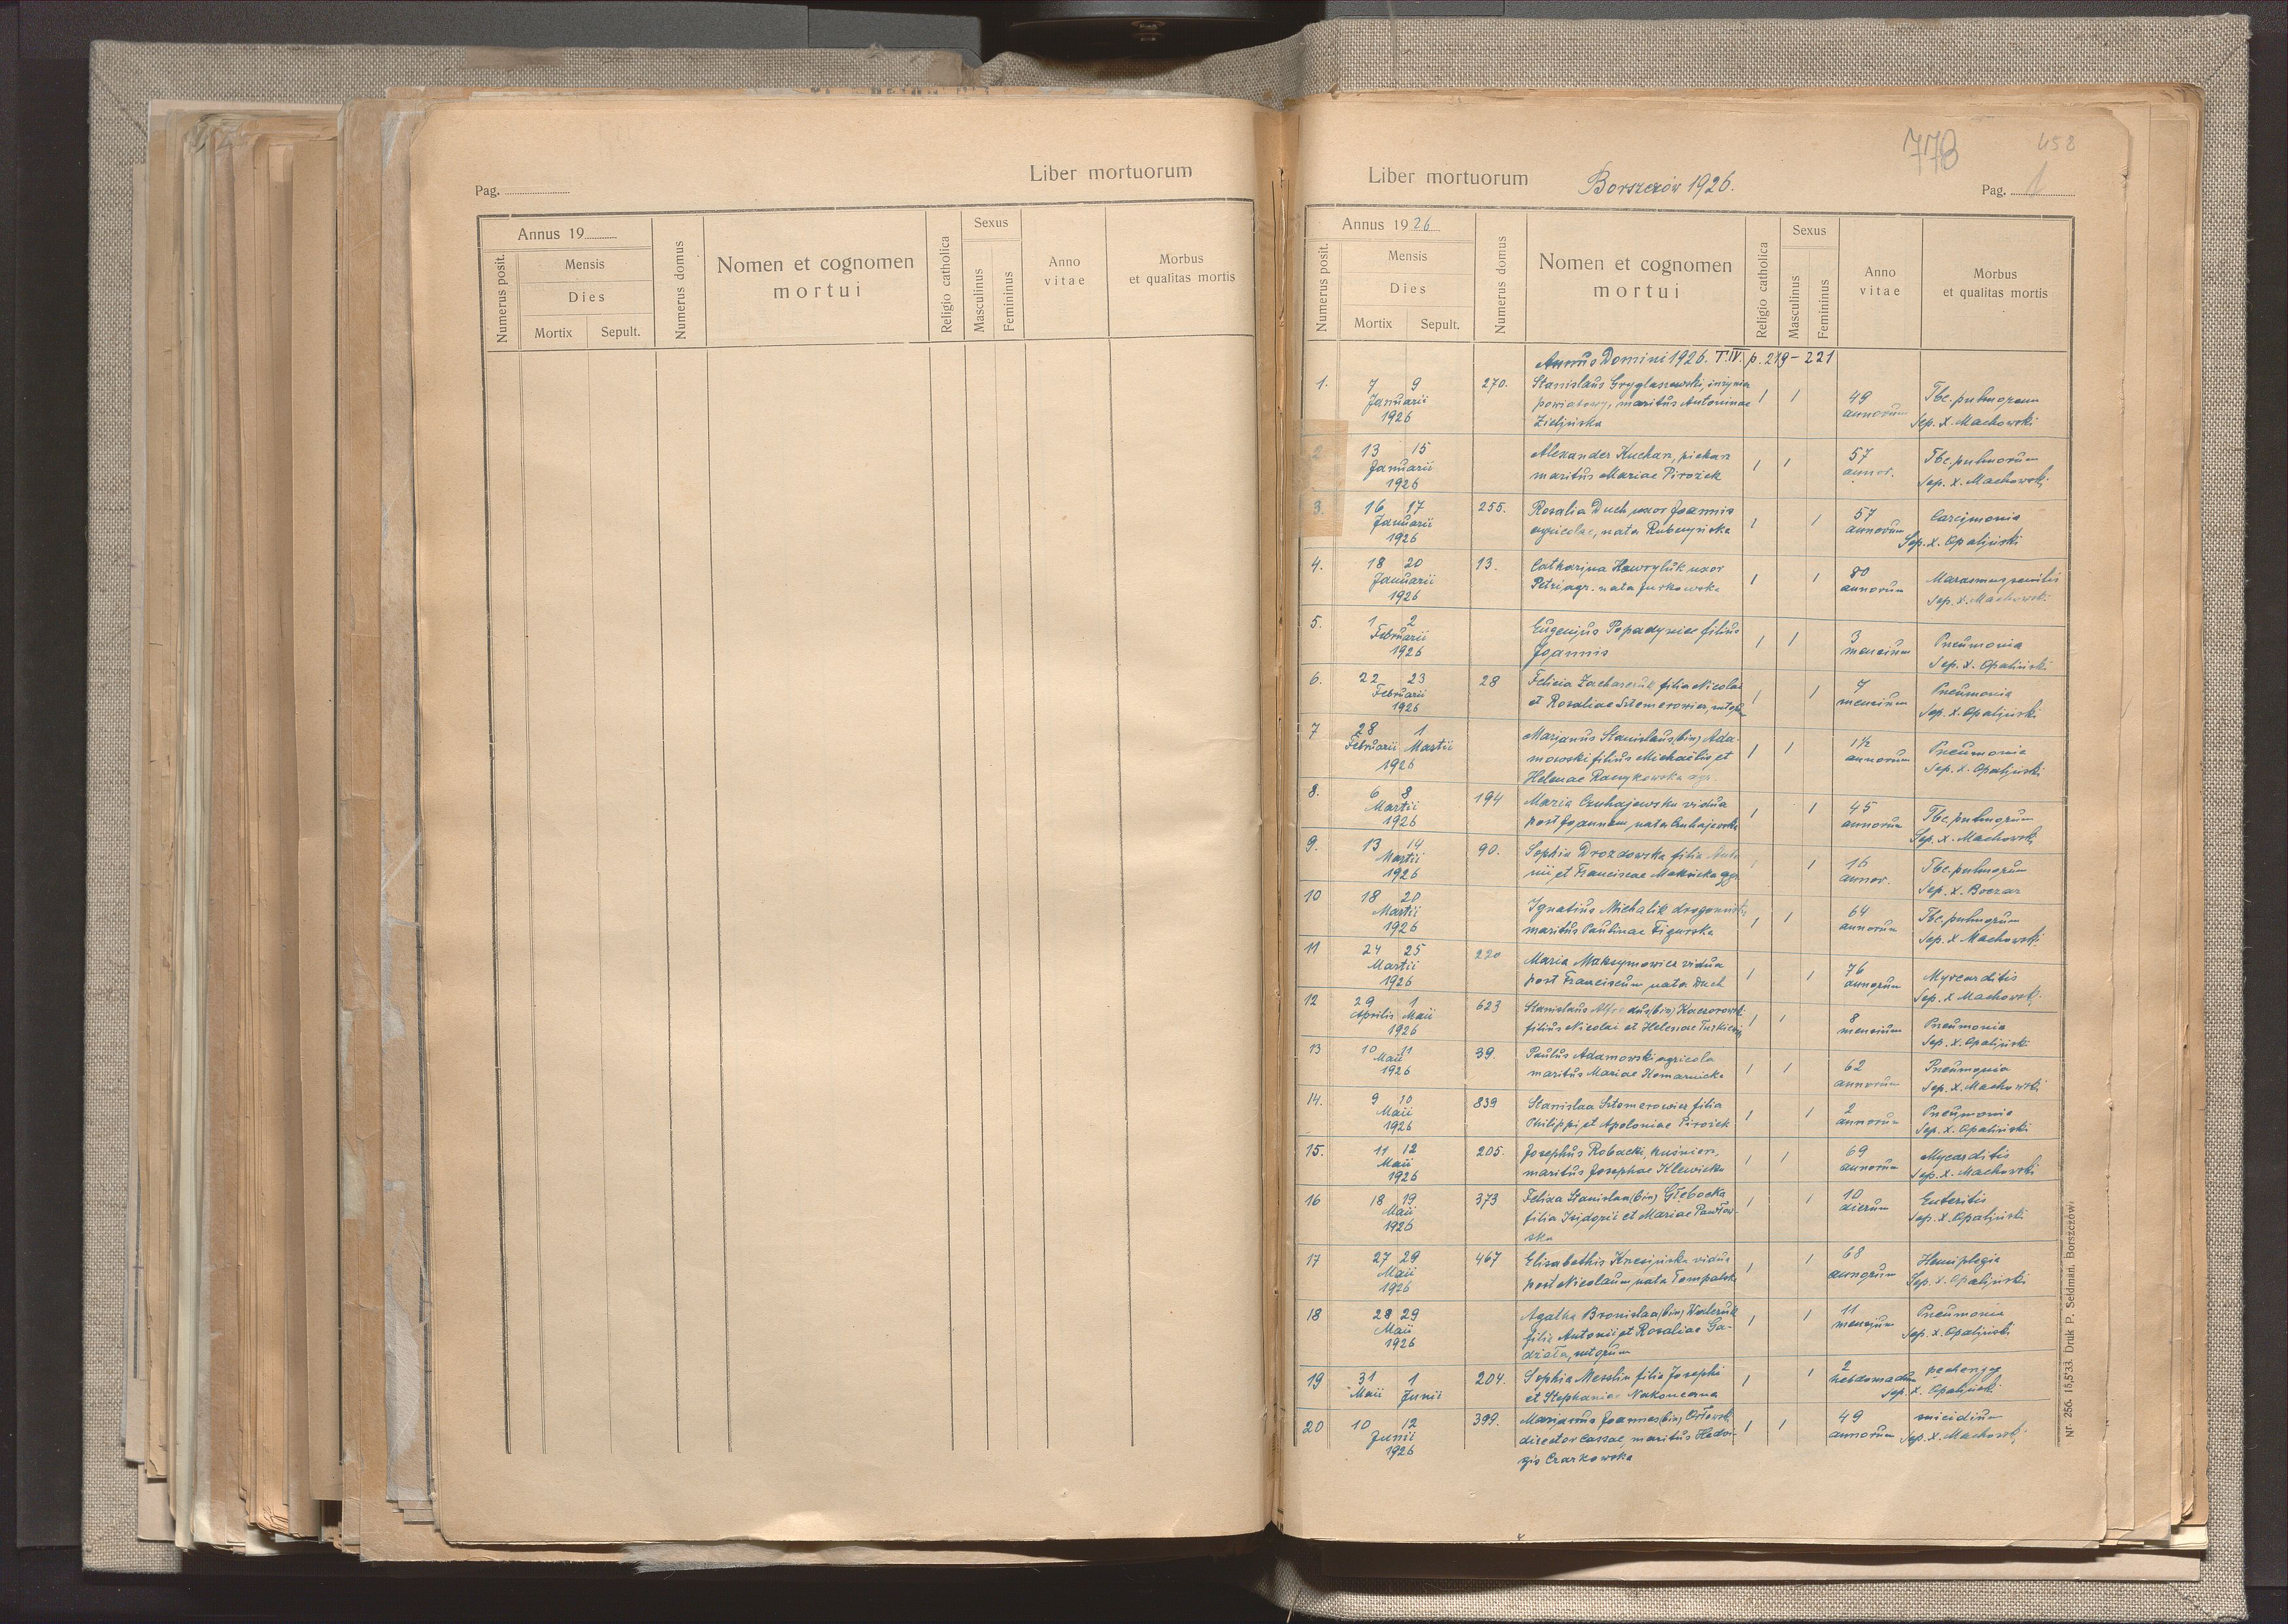 Liber mortuorum
Pag.
Annus 19
Numerus posit.
Mensis
Dies
Mortix
Sepult.
Numerus domus
Nomen et cognomen
mortui
Religio catholica
Sexus
Masculinus
Femininus
Anno
vitae
Morbus
et qualitas mortis
773
458
Liber mortuorum
Borszczów 1926.
Pag. 1
Annus 1926
Numerus posit.
Mensis
Dies
Mortix
Sepult.
Numerus domus
Nomen et cognomen
mortui
Religio catholica
Sexus
Masculinus
Femininus
Anno
vitae
Morbus
et qualitas mortis
Annus Domini 1926. T. IV. p. 219-221
1. 7 9 270. Stanislaus Gryglaszewski, inżynier 1 1 49 Tbc. pulmorum
Januarii powiatowy, maritus Antoninae annorum Sep. X. Machowski
1926 Zielińska
2 13 15 Alexander Kuchar, piekarz 1 1 57 Tbc. pulmorum
Januarii maritus Mariae Pirożek annor. Sep. X. Machowski
1926
3. 16 17 255. Rosalia Duch uxor Joannis 1 1 57
Januarii agricolae, nata annorum Sep. X. Opaliński
1926
4. 18 20 13. Catharina Hawryluk uxor 1 1 80 Marasmus senilis
Januarii Petri agr. nata Jurkowska annorum Sep. X. Machowski
1926
5. 1 2 Eugenjus Popadyniec filius 1 1 3 Pneumonia
Februarii Joannis mensium Sep. X. Opaliński
1926
6. 22 23 28 Felicia Zacharczuk filia Nicolai 1 1 7 Pneumonia
Februarii et Rosaliae Sztemerowicz, mensium Sep. X. Opaliński
1926
7 28 1 Marjanus Stanislaus (bin) Ada- 1 1 1½ Pneumonia
Februarii Martii mowski filius Michaëlis et annorum Sep. X. Opaliński
1926 Helenae Raczykowska agr.
8. 6 8 194 Maria Czuhajewska vidua 1 1 45 Tbc. pulmorum
Martii post Joannem, nata Czuhajewska annorum Sep. X. Machowski
1926
9. 13 14 90. Sophia Drozdowska filia Anto- 1 1 16 Tbc. pulmorum
Martii nii et Franciscae annor. Sep. X. Boczar
1926
10 18 20 Ignatius Michalik 1 1 64 Tbc. pulmorum
Martii maritus Paulinae Figurska annorum Sep. X Machowski
1926
11 24 25 220 Maria Maksymowicz vidua 1 1 76 Myocarditis
Martii post Franciscum, nata Duch annorum Sep. X Machowski
1926
12 29 1 623 Stanislaus Alfredus (bin) Kaczorowski 1 1 8 Pneumonia
Aprilis Maii filius Nicolai et Helenae mensium Sep. X. Opaliński
1926
13 10 11 39. Paulus Adamowski agricola 1 1 62 Pneumonia
Maii maritus Mariae Komarnicka annorum Sep. X. Machowski
1926
14. 9 10 839 Stanislaa Sztemerowicz filia 1 1 2 Pneumonia
Maii Philippi et Apoloniae Pirożek annorum Sep. X. Opaliński
1926
15. 11 12 205. Josephus Robacki, kuśnierz, 1 1 69 Mycarditis
Maii maritus Josephae Klewicka annorum Sep. X. Machowski
1926
16 18 19 373 Felixa Stanislaa (bin) Głebocka 1 1 10 Enteritis
Maii filia Isidorii et Mariae Pawłow- dierum Sep. X. Opaliński
1926 ska
17 27 29 467 Elisabethis vidua 1 1 68 Hemiplegia
Maii post Nicolaum, nata Tempalska annorum Sep. X. Opaliński
1926
18 28 29 Agatha Bronislaa (bin) Walczuk 1 1 11 Pneumonia
Maii filia Antonii et Rosaliae Ga- mensium Sep. X. Opaliński
1926 działa,
19 31 1 204. Sophia filia Josephi 1 1 2
Maii Junii et Stephaniae Nakoneczna hebdomadum Sep. X. Opaliński
20 10 12 399. Marjanus Joannes (bin) Orłowski 1 1 49 suicidium
Junii director Cassae, maritus Hedvi- annorum Sep. X. Machowski
1926 gis Czarkowska
Nr. 256. 15,5'33. Druk P. Seidman. Borszczów.